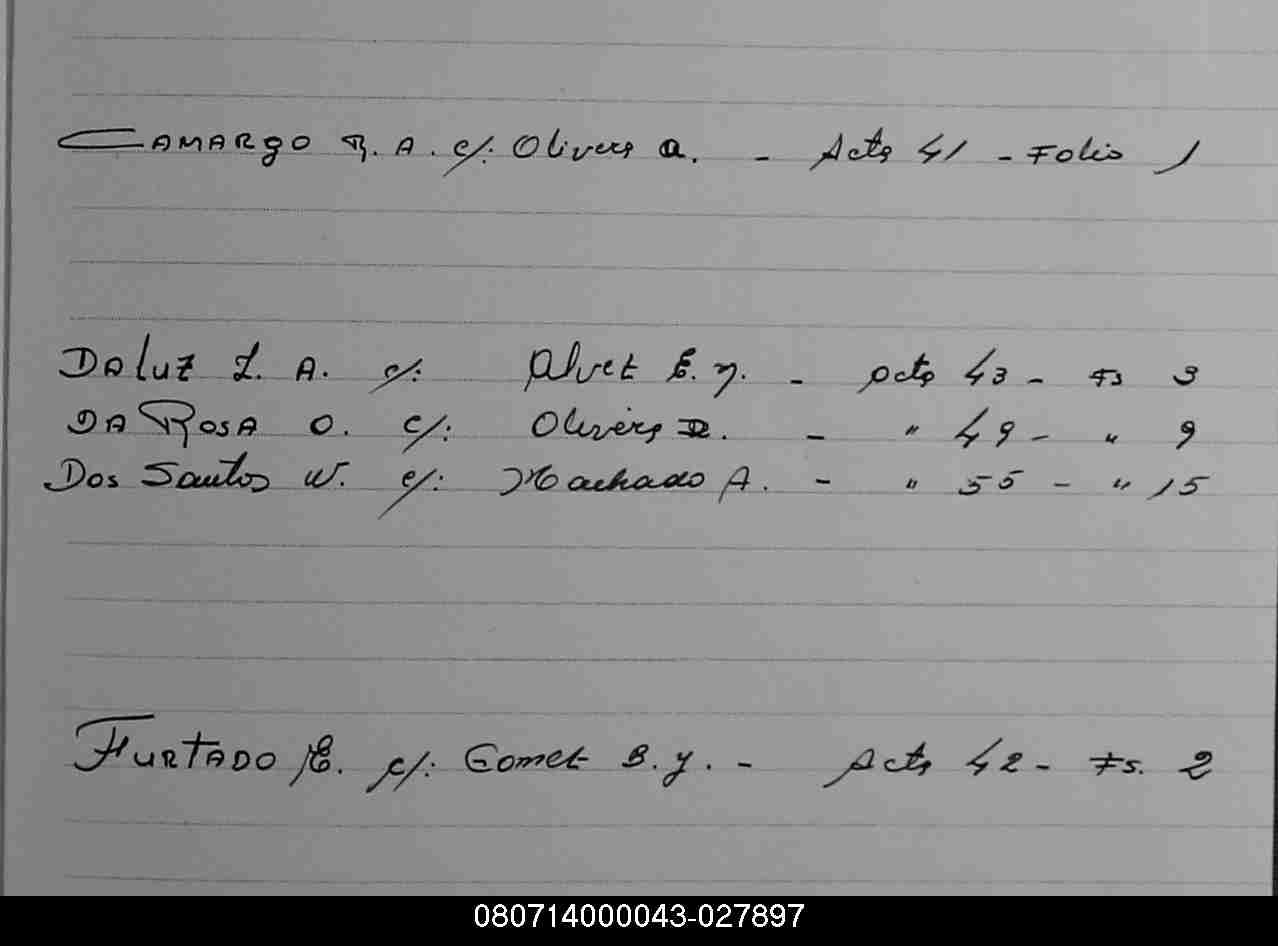 CAMARGO R. A. c/: Olivera A. - Acta 41 - Folio 1
DA LUZ L. A. c/: Alvez E. Y. - Acta 43 - Fs 3
DA ROSA O. c/: Olivera D. - " 49 - " 9
Dos Santos W. c/: Machado A. - " 55 - " 15
FURTADO E. c/: Gomez B. Y. - Acta 42 - Fs. 2
080714000043-027897